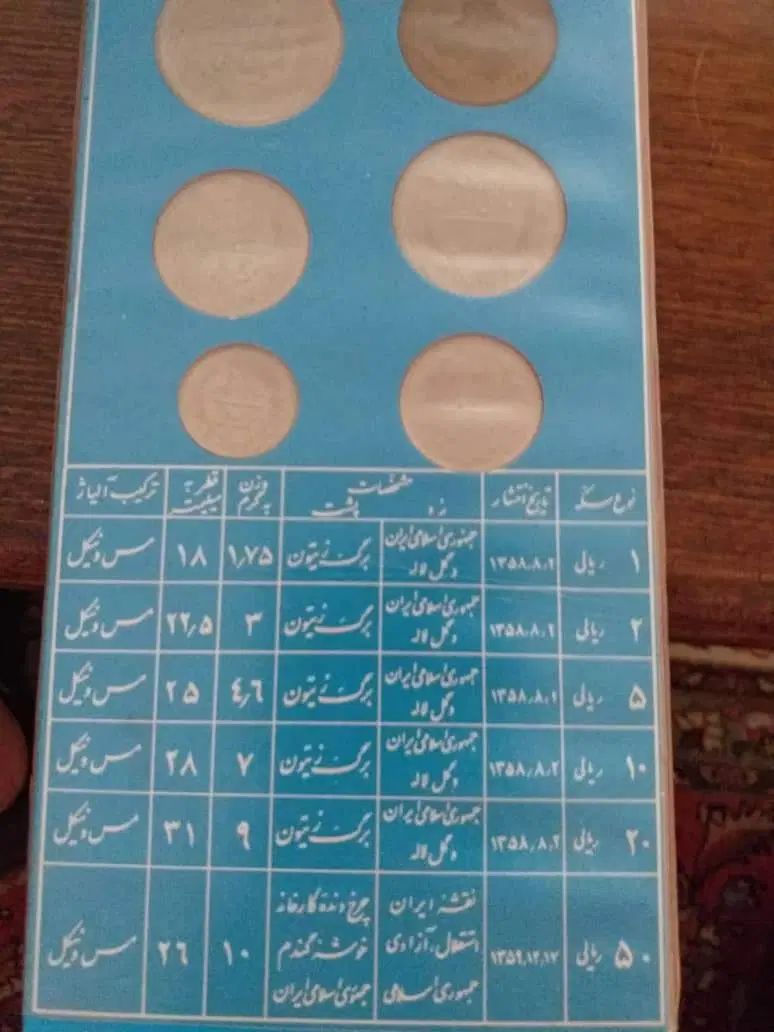 نوع سکه
تاریخ انتشار
مشخصات
رو پشت
وزن
به گرم
قطر به
میلیمتر
ترکیب آلیاژ
۱ ریالی
۱۳۵۸٫۸٫۲
جمهوری اسلامی ایران
و گل لاله
برگ زیتون
۱٫۷۵
۱۸
مس و نیکل
۲ ریالی
۱۳۵۸٫۸٫۲
جمهوری اسلامی ایران
و گل لاله
برگ زیتون
۳
۲۲٫۵
مس و نیکل
۵ ریالی
۱۳۵۸٫۸٫۲
جمهوری اسلامی ایران
و گل لاله
برگ زیتون
۴٫۶
۲۵
مس و نیکل
۱۰ ریالی
۱۳۵۸٫۸٫۲
جمهوری اسلامی ایران
و گل لاله
برگ زیتون
۷
۲۸
مس و نیکل
۲۰ ریالی
۱۳۵۸٫۸٫۲
جمهوری اسلامی ایران
و گل لاله
برگ زیتون
۹
۳۱
مس و نیکل
۵۰ ریالی
۱۳۵۹٫۱۲٫۱۷
نقشه ایران
استقلال، آزادی
جمهوری اسلامی
چرخ دنده کارخانه
خوشه گندم
جمهوی اسلامی ایران
۱۰
۲۶
مس و نیکل